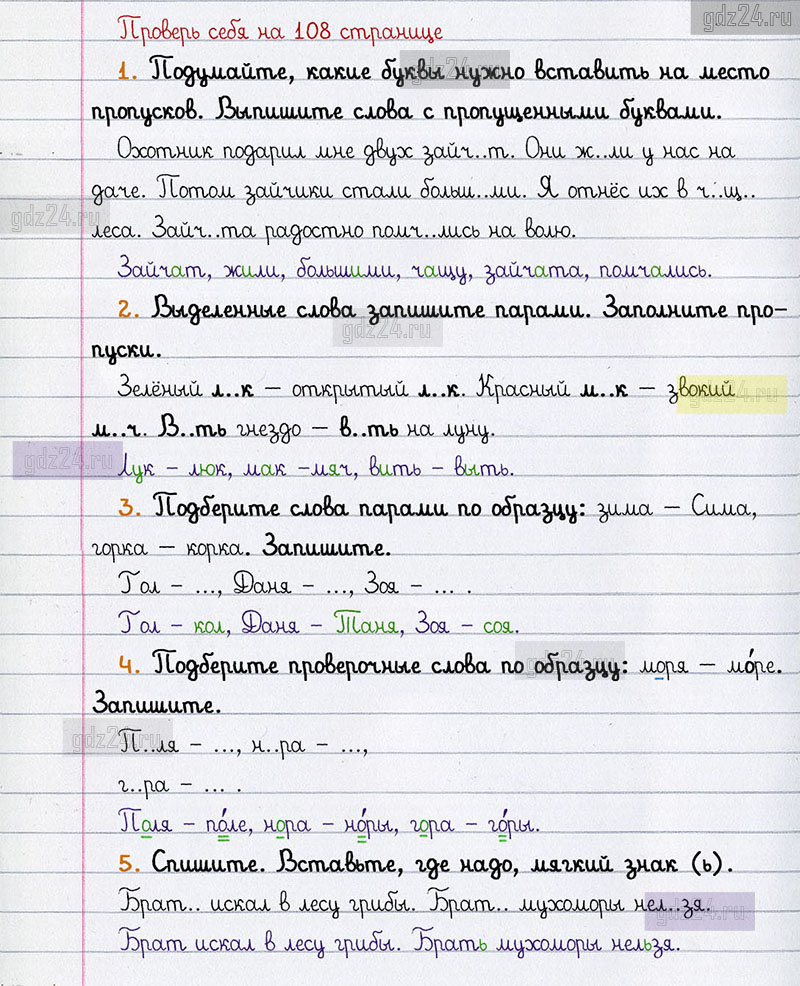 gdz24.ru
Проверь себя на 108 странице
1. Подумайте, какие буквы нужно вставить на место
пропусков. Выпишите слова с пропущенными буквами.
Охотник подарил мне двух зайч..т. Они ж..ли у нас на
даче. Потом зайчики стали больш..ми. Я отнёс их в ч..щ..
леса. Зайч..та радостно помч..лись на волю.
Зайчат, жили, большими, чащу, зайчата, помчались.
2. Выделенные слова запишите парами. Заполните про-
пуски.
Зелёный л..к – открытый л..к. Красный м..к – звокий
м..ч. В..ть гнездо – в..ть на луну.
Лук – люк, мак -мяч, вить – выть.
3. Подберите слова парами по образцу: зима – Сима,
горка – корка. Запишите.
Гол – ..., Даня – ..., Зоя – ... .
Гол – кол, Даня – Таня, Зоя – соя.
4. Подберите проверочные слова по образцу: моря – мо́ре.
Запишите.
П..ля – ..., н..ра – ...,
г..ра – ... .
Поля – по́ле, нора – но́ры, гора – го́ры.
5. Спишите. Вставьте, где надо, мягкий знак (ь).
Брат.. искал в лесу грибы. Брат.. мухоморы нел..зя.
Брат искал в лесу грибы. Брать мухоморы нельзя.